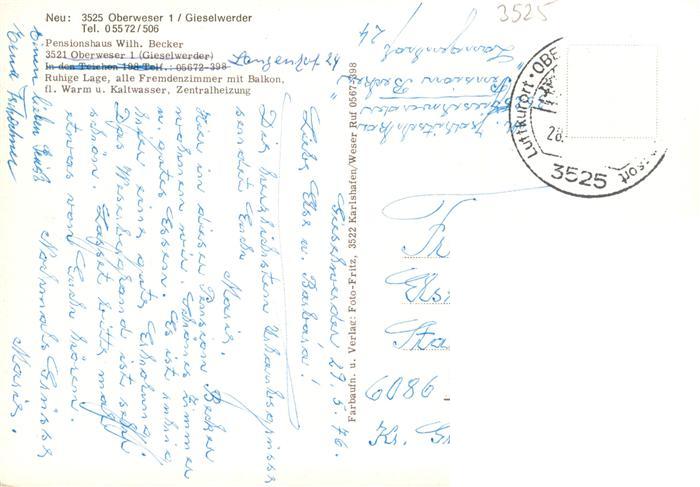 Neu: 3525 Oberweser 1 / Gieselwerder
Tel. 05572/506
Pensionshaus Wilh. Becker
3521 Oberweser 1 (Gieselwerder)
In den Teichen 198 Telf.: 05672-398
Ruhige Lage, alle Fremdenzimmer mit Balkon,
fl. Warm u. Kaltwasser, Zentralheizung
3525
Gieselwerder 29.5.76.
Liebe Else u. Barbara!
Die herzlichsten Urlaubsgrüsse
sendet Euch Maria.
Hier in dieser Pension Becker
wohnen wir. Schönes Zimmer
u. gutes Essen. Es ist ruhig
hier eine gute Erholung.
Das Weserbergland ist sehr
schön. Lasset bitte mal
etwas von Euch hören.
Nochmals Grüsse
Maria.
Einen lieben Gruß
Erna
Farbaufn. u. Verlag: Foto-Fritz, 3522 Karlshafen/Weser Ruf 05672-398
Pension Becker
24
Luftkurort · OBE
28.
3525
6086
Kr. G